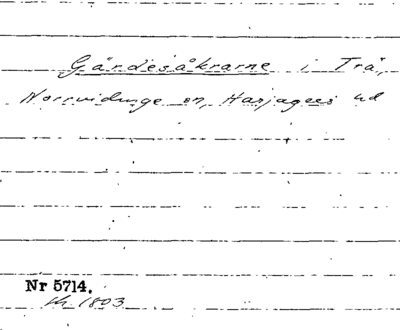 Gärdesåkrarne i Trä,
Norrvidinge sn, Harjagers hd
Nr 5714.
th. 1803